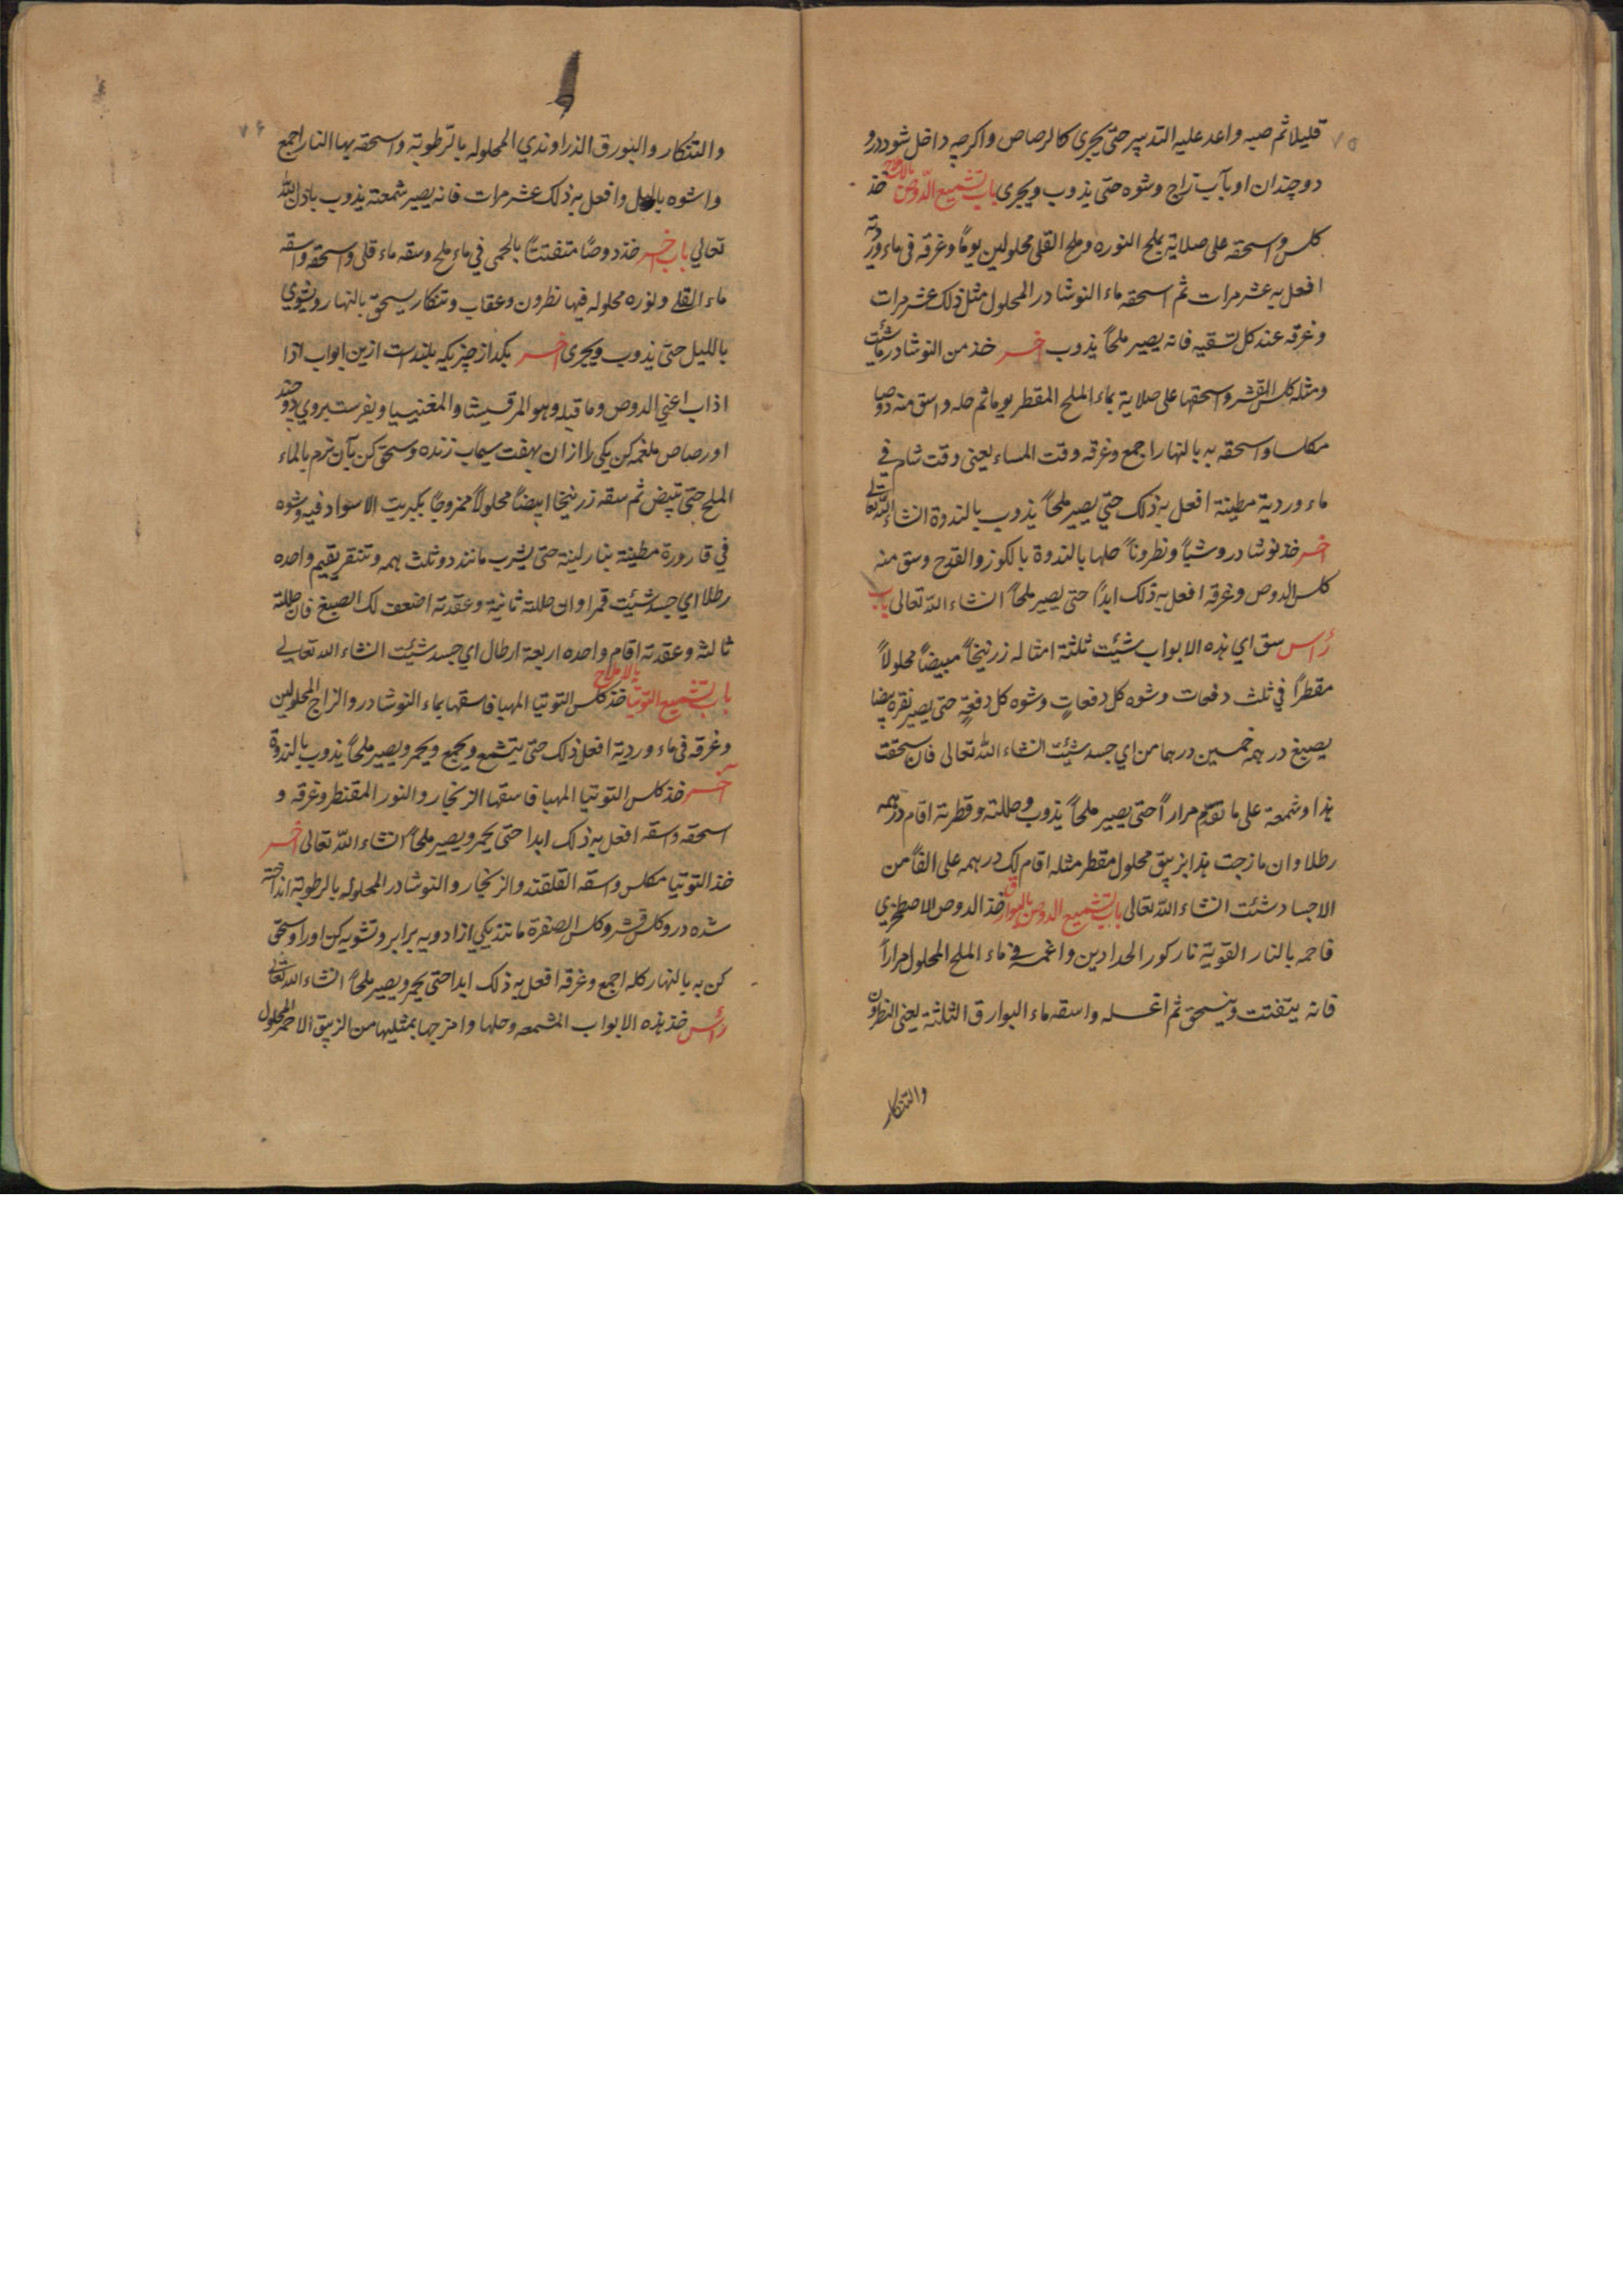 ٧٥
قليلا ثم صبه واعد عليه التدبير حتى يجرى كالرصاص واكرچه داخل شود درو
دو چندان او بآب زاج وشوه حتى يذوب ويجرى باب تشميع الدوص بالاملاح خذ
كلس واسحقه على صلاية بملح النوره وملح القلى محلولين يوماً وغرقه فى ماء وردية
افعل به عشر مرات ثم اسحقه ماء النوشادر المحلول مثل ذلك عشر مرات
وغرقه عند كل تسقيه فانه يصير ملحاً يذوب اخر خذ من النوشادر ما شئت
ومثله كلس القشر واسحقها على صلاية بماء الملح المقطر يوما ثم حله واسق منه دوصا
مكلسا واسحقه به بالنهار اجمع وغرقه وقت المساء يعنى وقت شام فى
ماء وردية مطينة افعل به ذلك حتى يصير ملحاً يذوب بالندوة انشاء الله تعالى
اخر خذ نوشادر وشباً ونطروناً حلها بالندوة بالكوز والقدح وسق منه
كلس الدوص وغرقه افعل به ذلك ابداً حتى يصير ملحاً انشاء الله تعالى باب
رأس سق اي هذه الابواب شيئت ثلثة امثاله زرنيخاً مبيضاً محلولاً
مقطراً في ثلث دفعات وشوه كل دفعات وشوه كل دفعةٍ حتى يصير نقره بيضا
يصبغ درهمه خمسين درهما من اي جسد شيئت انشاء الله تعالى فان سحقت
هذا وشمعة على ما تقدم مراراً حتى يصير ملحاً يذوب وحللته وقطرته اقام درهمه
رطلا وان مازجت هذا بزيبق محلول مقطر مثله اقام لك درهمه على الفاً من
الاجساد شئت انشاء الله تعالى باب تشميع الدوص بالبوارق خذ الدوص الاصطخري
فاحمه بالنار القوية نار كور الحدادين واغمسه فى ماء الملح المحلول مراراً
فانه يتفتت وينسحق ثم اغسله واسقه ماء البوارق الثلثة يعنى النطرون
والتنكار
٧۶
والتنكار والبورق الذراوندي المحلوله بالرطوبة واسحقه بها النار اجمع
واشوه بالليل وافعل به ذلك عشر مرات فانه يصير شمعة يذوب باذن الله
تعالي باب اخر خذ دوصًا متفتتاً بالحمى في ماء ملح وسقه ماء قلى واسحقه واسقه
ماء القلى ونوره محلوله فيها نطرون وعقاب وتنكار يسحق بالنهار ويشوي
بالليل حتى يذوب ويجرى اخر بكداز چزيكه بلندست ازين ابواب اذا
اذاب اعنى الدوص وما قبله وهو المرقيشا والمغنيسيا وبفرست بروي دو چند
او رصاص ملغمه كن يكى را ازان بهفت سيماب زنده وسحق كن بآن نرم بالماء
الملح حتى يبيض ثم سقه زرنيخا ابيضاً محلولاً ممزوجًا بكبريت الاسواد فيه وشوه
في قارورة مطينة بنار لينة حتى يشرب مانند دو ثلث همه وتنقر يقيم واحده
رطلا اي جسد شيئت قمرا وان حللته ثانية وعقدته اضعف لك الصبغ فان حللته
ثالثه وعقدته اقام واحده اربعة ارطال اي جسد شيئت انشاء الله تعالى
باب تشميع التوتيا بالاملاح خذ كلس التوتيا المهيا فاسقها بماء النوشادر والزاج المحلولين
وغرقه فى ماء وردية افعل ذلك حتى يتشمع ويجمع ويحمر ويصير ملحاً يذوب بالندوة
اخر خذ كلس التوتيا المهيا فاسقها الزنجار والنور المقنطر وغرقه و
اسحقه واسقه افعل به ذلك ابدا حتى يحمر ويصير ملحاً انشاء الله تعالى اخر
خذ التوتيا مكلس واسقه القلقند والزنجار والنوشادر المحلوله بالرطوبة انداخته
شده درو كلس قشر وكلس الصفرة مانند يكي از ادويه برابر وتشويه كن اورا وسحق
كن به بالنهار كله اجمع وغرقه افعل به ذلك ابدا حتى يحمر ويصير ملحاً انشاء الله تعالى
رأس خذ هذه الابواب المشمعه وحلها وامزجها بمثليها من الزيبق الاحمر المحلول